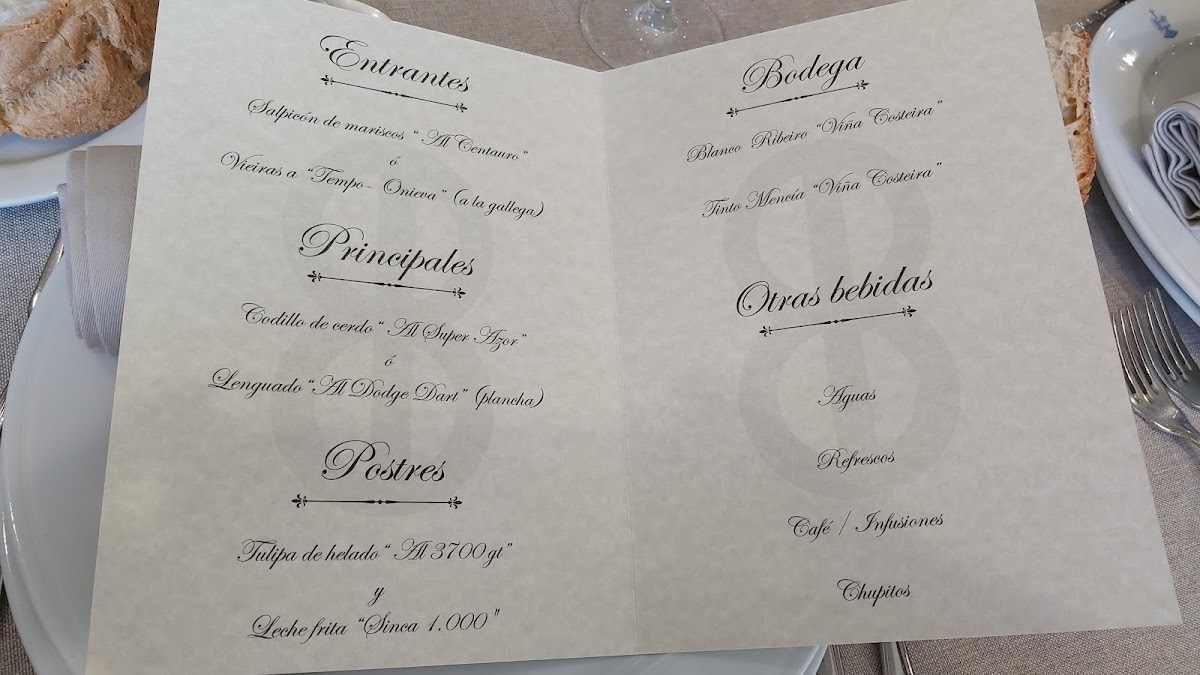 Entrantes
Salpicón de mariscos “ Al Centauro”
ó
Vieiras a “Tempo- Onieva” (a la gallega)
Principales
Codillo de cerdo “ Al Super Azor”
ó
Lenguado “Al Dodge Dart” (plancha)
Postres
Tulipa de helado “ Al 3700 gt”
y
Leche frita “Simca 1.000”
Bodega
Blanco Ribeiro “Viña Costeira”
Tinto Mencía “Viña Costeira”
Otras bebidas
Aguas
Refrescos
Café / Infusiones
Chupitos